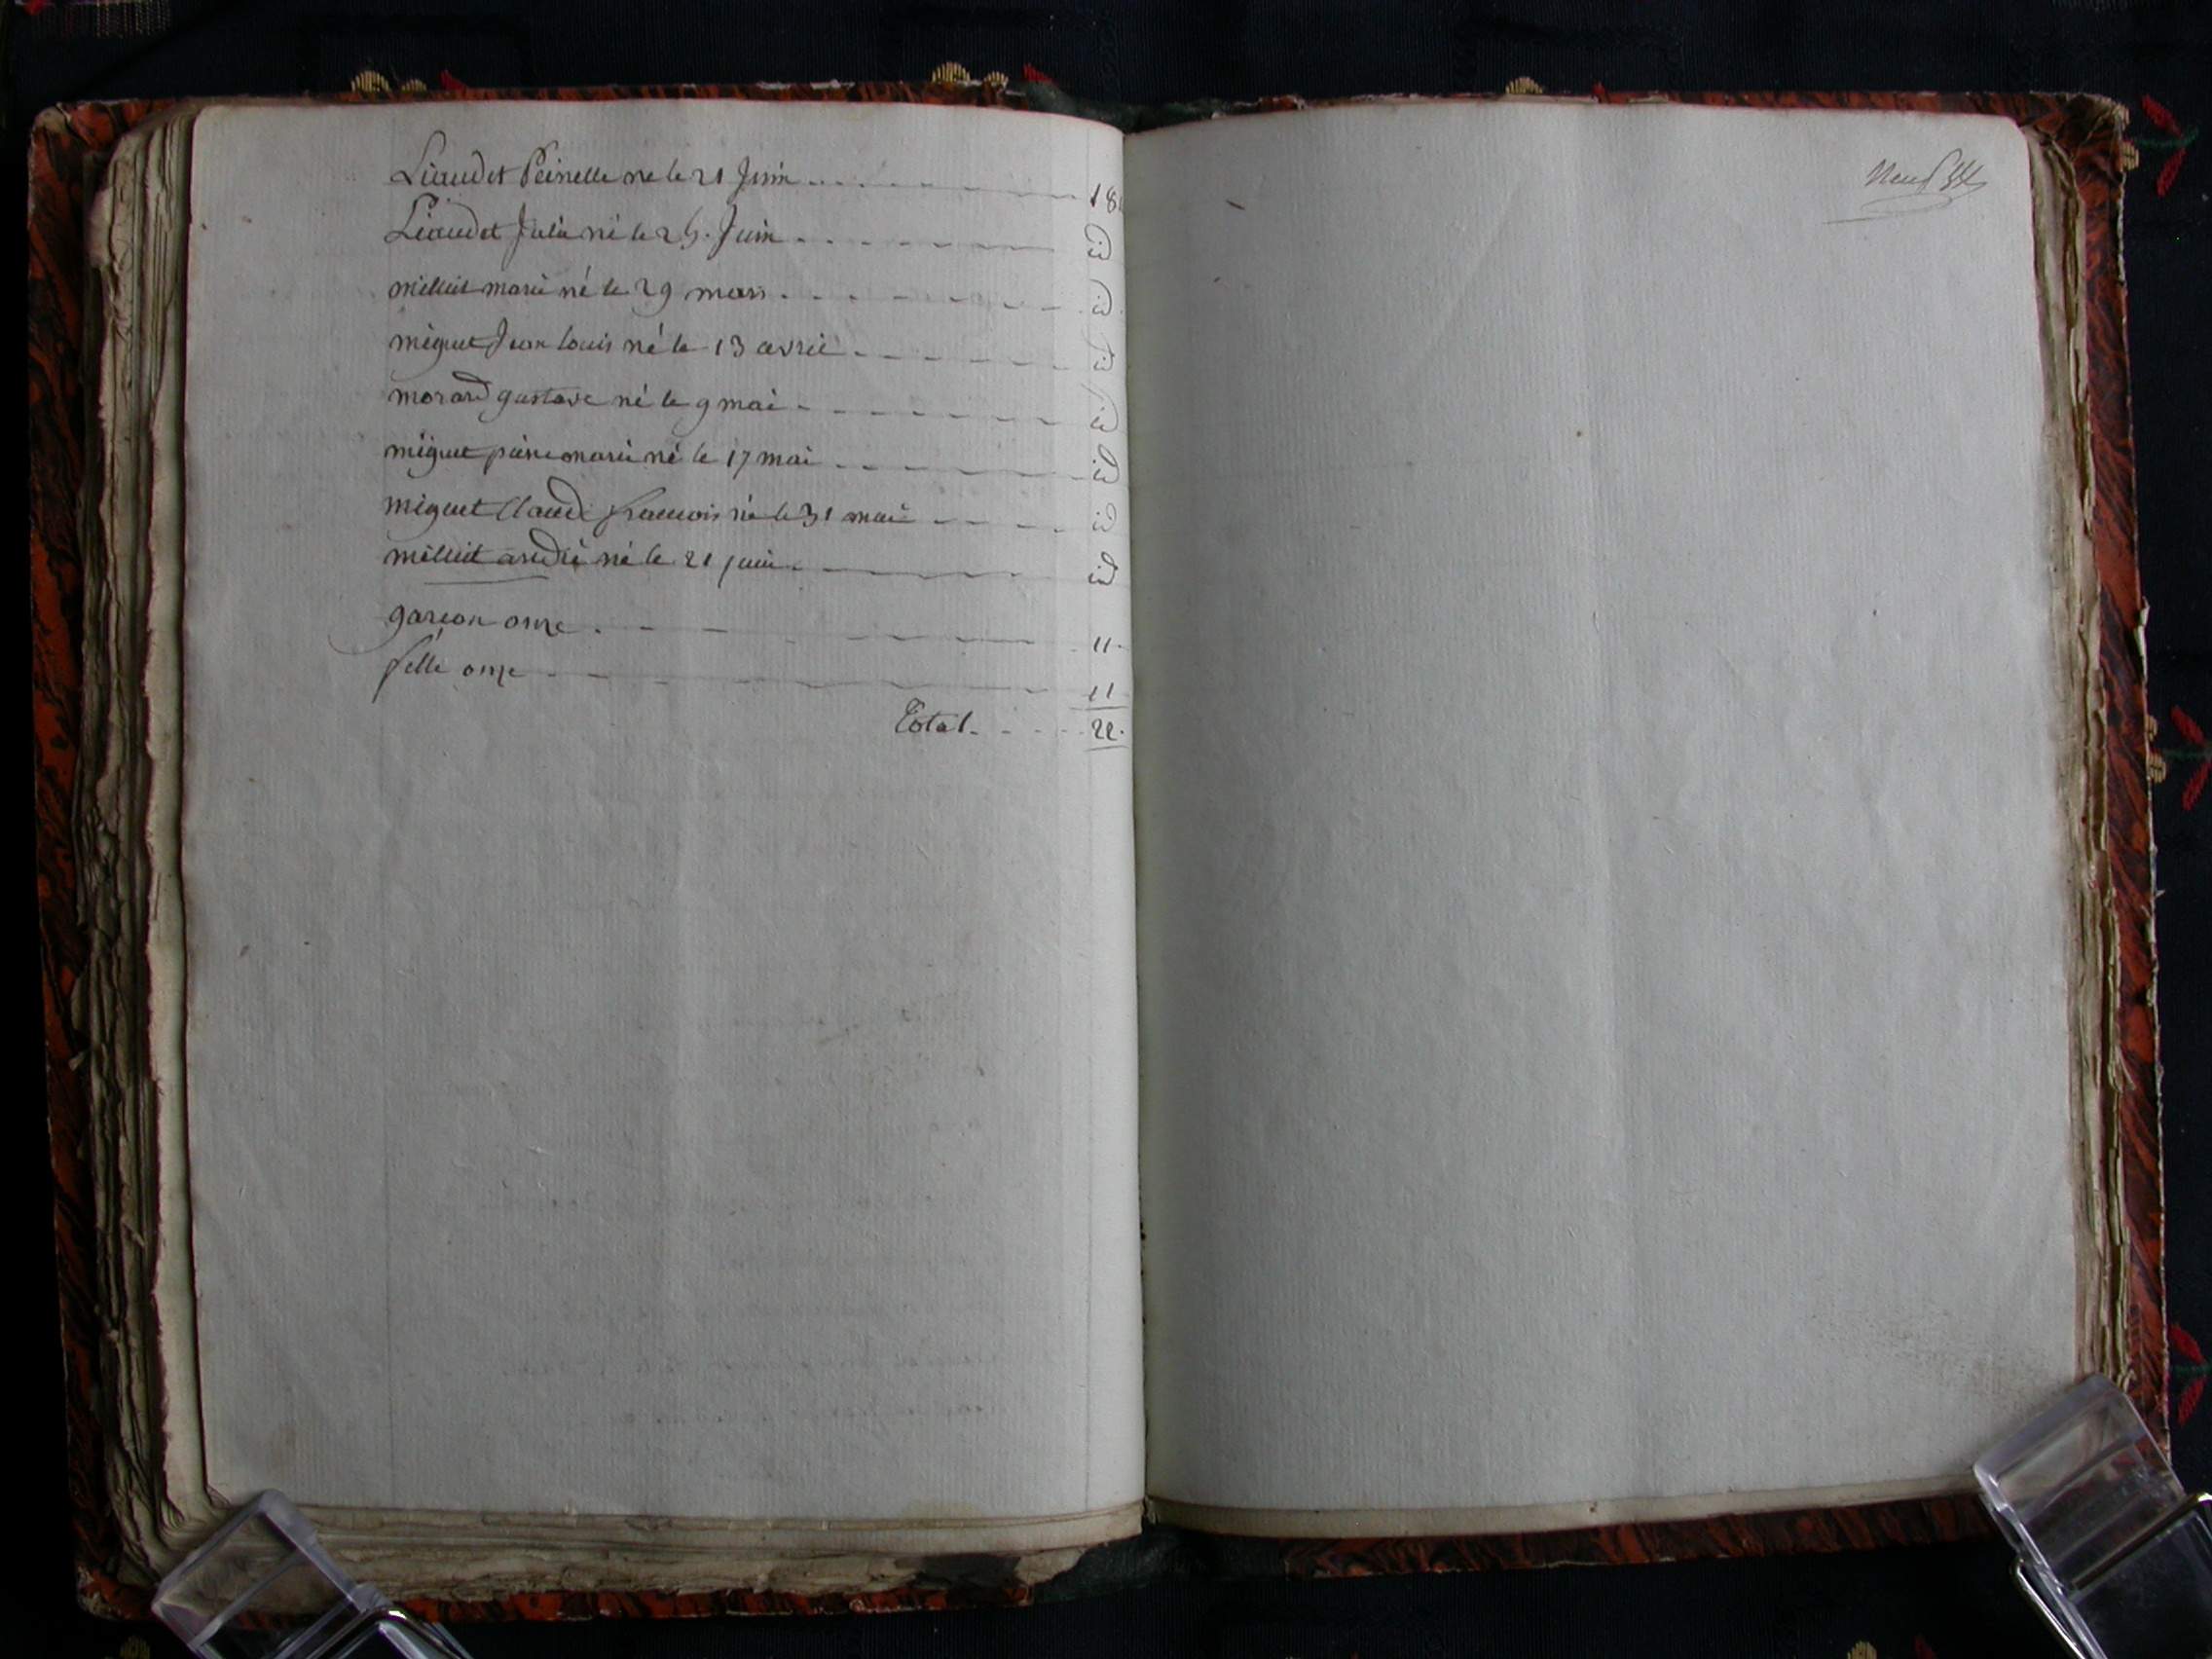 Liaudet Peinelle né le 21 Juin 18
Liaudet Julie né le 25. Juin id
milliet marie né le 29 mars id
miguet Jean louis né le 13 avril id
morard gustave né le 9 mai id
miguet pierre marie né le 17 mai id
miguet Claude francois né le 31 mai id
milliet andré né le 21 juin id
garcon onze 11.
fille onze 11
Total 22.
Neuf